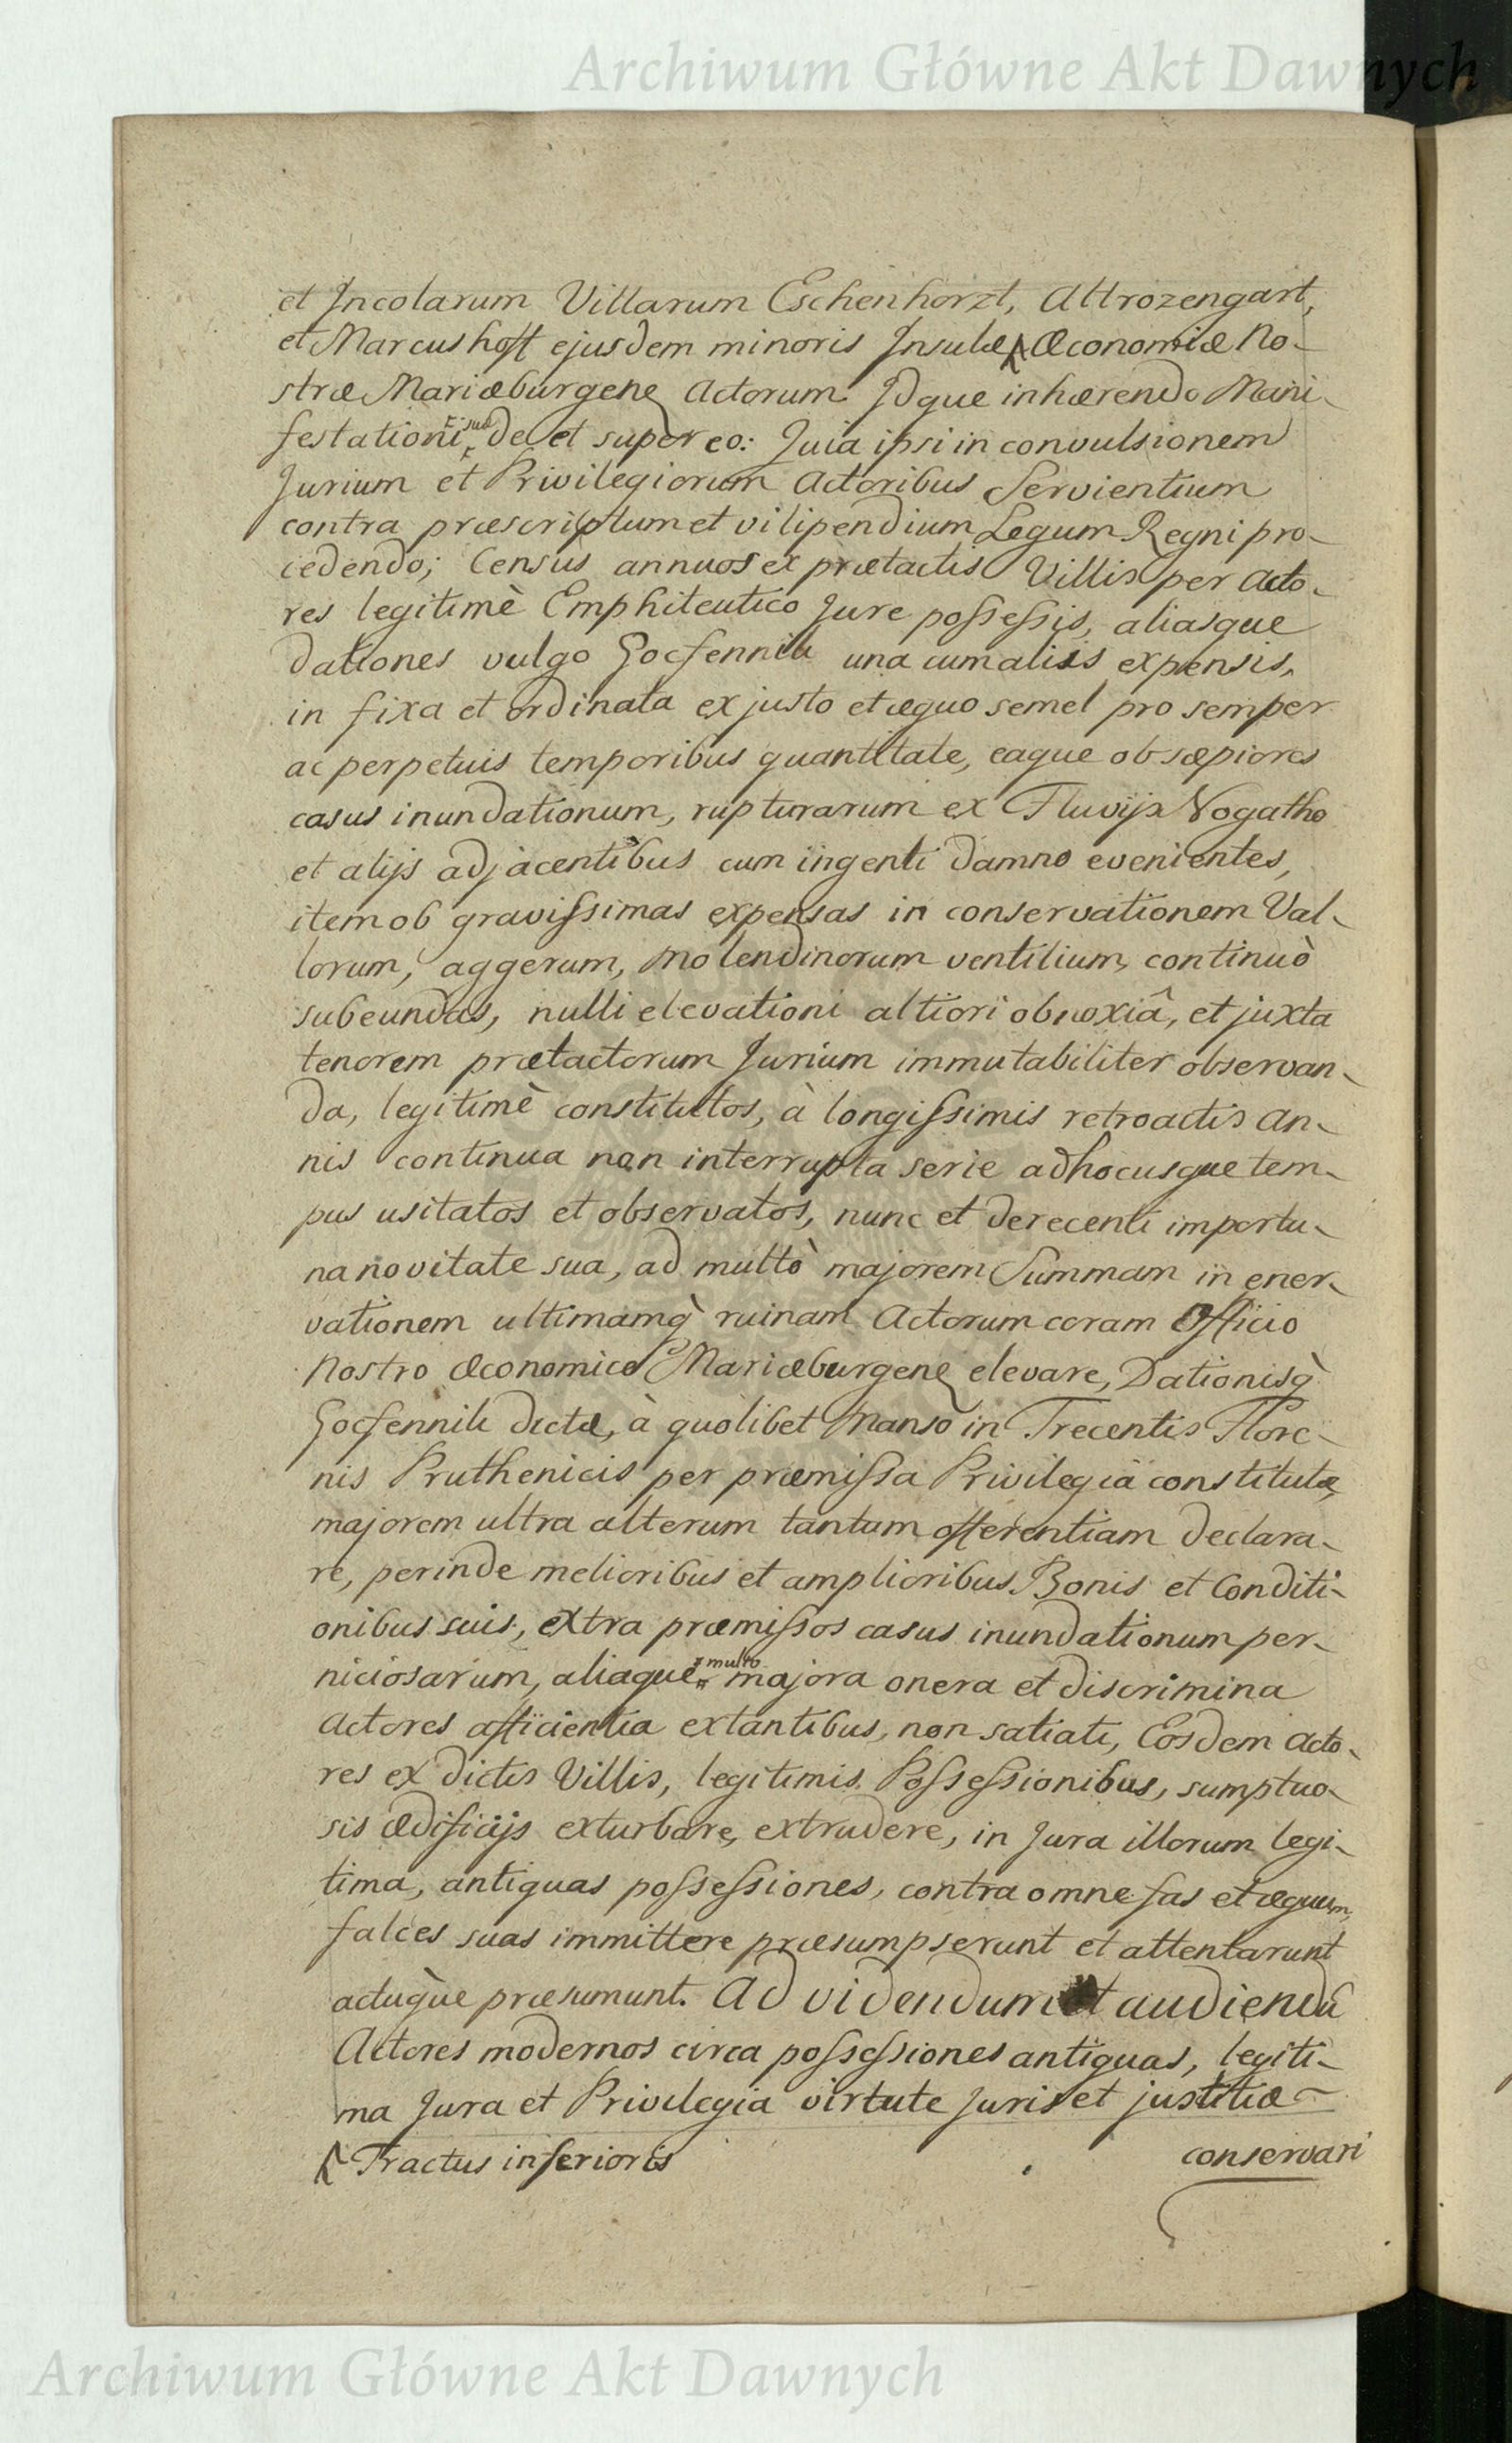 Archiwum Główne Akt Dawnych
et Incolarum Villarum Eschenhorzt, Altrozengart,
et Marcushoff ejusdem minoris Insulæ Œconomiæ No-
stræ Mariæburgens Actorum. Idque inhærendo Mani-
festationi suæ de et super eo: Quia ipsi in convulsionem
Jurium et Privilegiorum Actoribus Servientium
contra præscriptum et vilipendium Legum Regni pro-
cedendo; Census annuos ex prætactis Villis per Acto-
res legitimè Emphiteutico Jure possessis, aliasque
dationes vulgo Gocfennik una cum aliis expensis,
in fixa et ordinata ex justo et æquo semel pro semper
ac perpetuis temporibus quantitate, eaque ob sæpiores
casus inundationum, rupturarum ex Fluvijs Nogatho
et alijs adjacentibus cum ingenti damno evenientes,
item ob gravissimas expensas in conservationem Val-
lorum, aggerum, Molendinorum ventilium, continuò
subeundas, nulli elevationi altiori obnoxiâ, et juxta
tenorem prætactorum Jurium immutabiliter observan-
da, legitimè constitutos, à longissimis retroactis an-
nis continua non interrupta serie adhocusque tem-
pus usitatos et observatos, nunc et de recenti importu-
na novitate sua, ad multò majorem Summam in ener-
vationem ultimamq̀ ruinam Actorum coram Officio
Nostro œconomico Mariæburgens elevare, Dationisq̀
Gocfennik dictæ, à quolibet Manso in Trecentis Flore-
nis Pruthenicis per præmissa Privilegia constitutæ,
majorem ultra alterum tantum offerentiam declara-
re, perinde melioribus et amplioribus Bonis et Conditi-
onibus suis, extra præmissos casus inundationum per-
niciosarum, aliaque multo majora onera et discrimina
Actores afficientia extantibus, non satiati, Eosdem Acto-
res ex dictis Villis, legitimis Possessionibus, sumptuo-
sis ædificijs exturbare, extrudere, in Jura illorum legi-
tima, antiquas possessiones, contra omne fas et æquum,
falces suas immittere præsumpserunt et attentarunt
actuq̀ue præsumunt. Ad videndum et audiendū
Actores modernos circa possessiones antiquas, legiti-
ma Jura et Privilegia virtute Juris et justitiæ
Tractus inferioris
conservari
Archiwum Główne Akt Dawnych